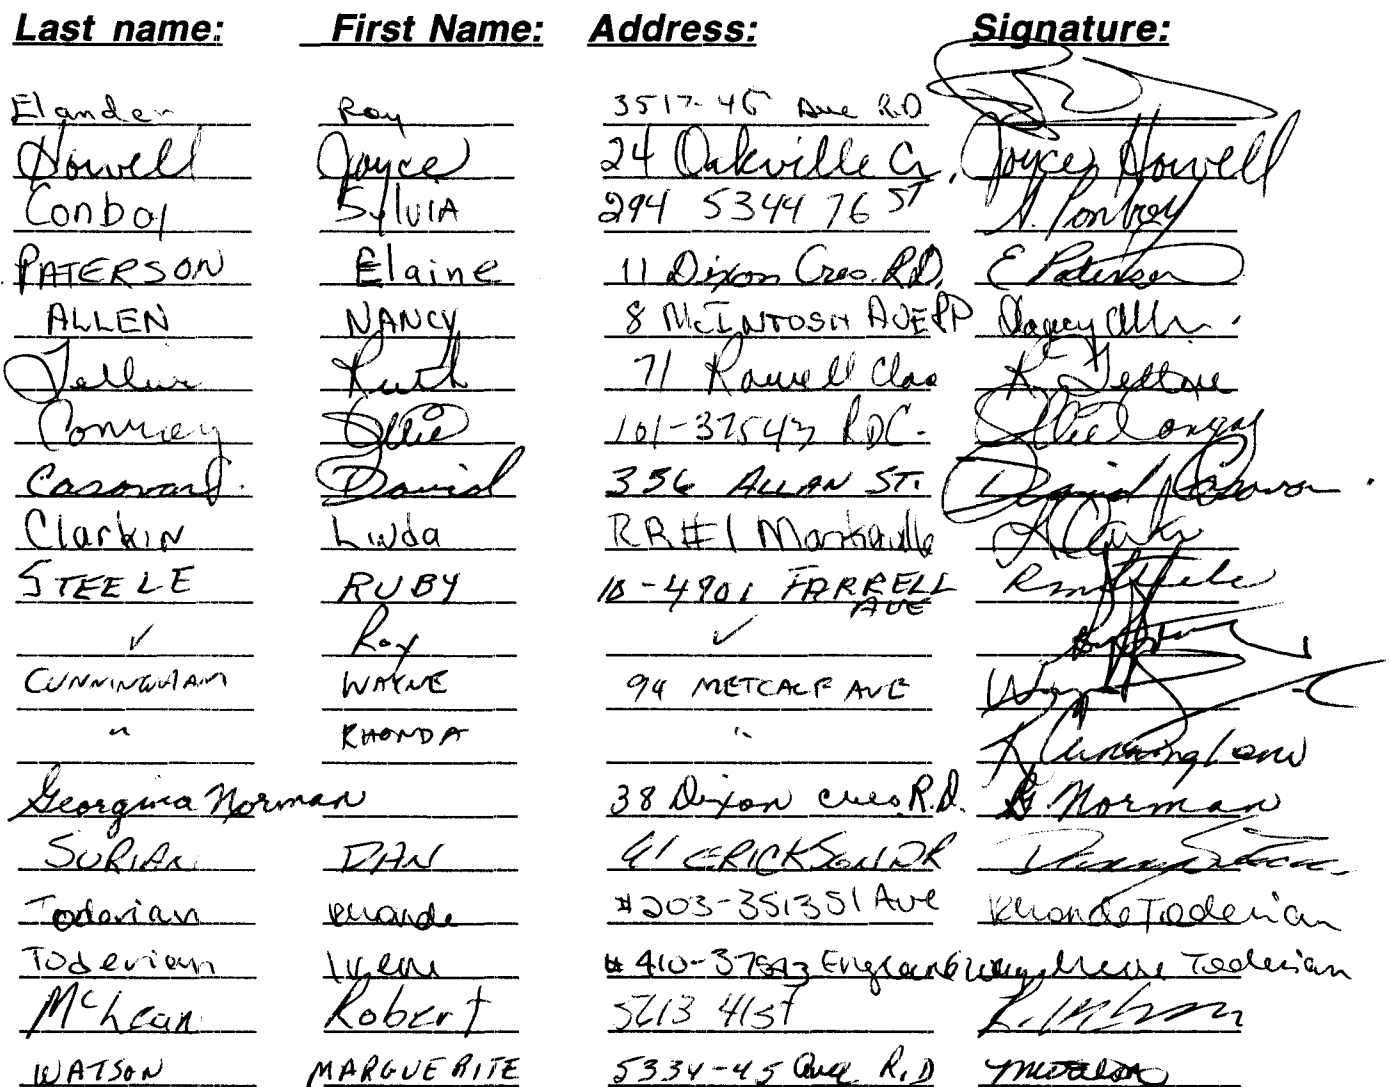 Last name: First Name: Address: Signature:
Elander Roy 3517-45 Ave R.D
Howell Joyce 24 Oakville Cr. Joyce Howell
Conboy Sylvia 294 5344 76 ST S. Conboy
PATERSON Elaine 11 Dixon Cres. R.D. E Paterson
ALLEN NANCY 8 McINTOSH AVE Nancy Allen
Ruth 71 Rowell Clos R.
Conroy Ollie 101-37543 RDC. Ollie Conroy
David 356 ALLAN ST. David
Clarkin Linda RR#1 L Clarkin
STEELE RUBY 10-4901 FARRELL AVE
✓ Roy ✓
CUNNINGHAM WAYNE 94 METCALF AVE
" RHONDA " R Cunningham
Georgina Norman 38 Dixon cres. R.D. G. Norman
SURIAN DAN 41 ERICKSON DR
Toderian Rhonda #203-3513 51 Ave Rhonda Toderian
Toderian Irene #410-37543 England way Irene Toderian
McLean Robert 5613 41st R. McLean
WATSON MARGUERITE 5334-45 Ave R.D M Watson